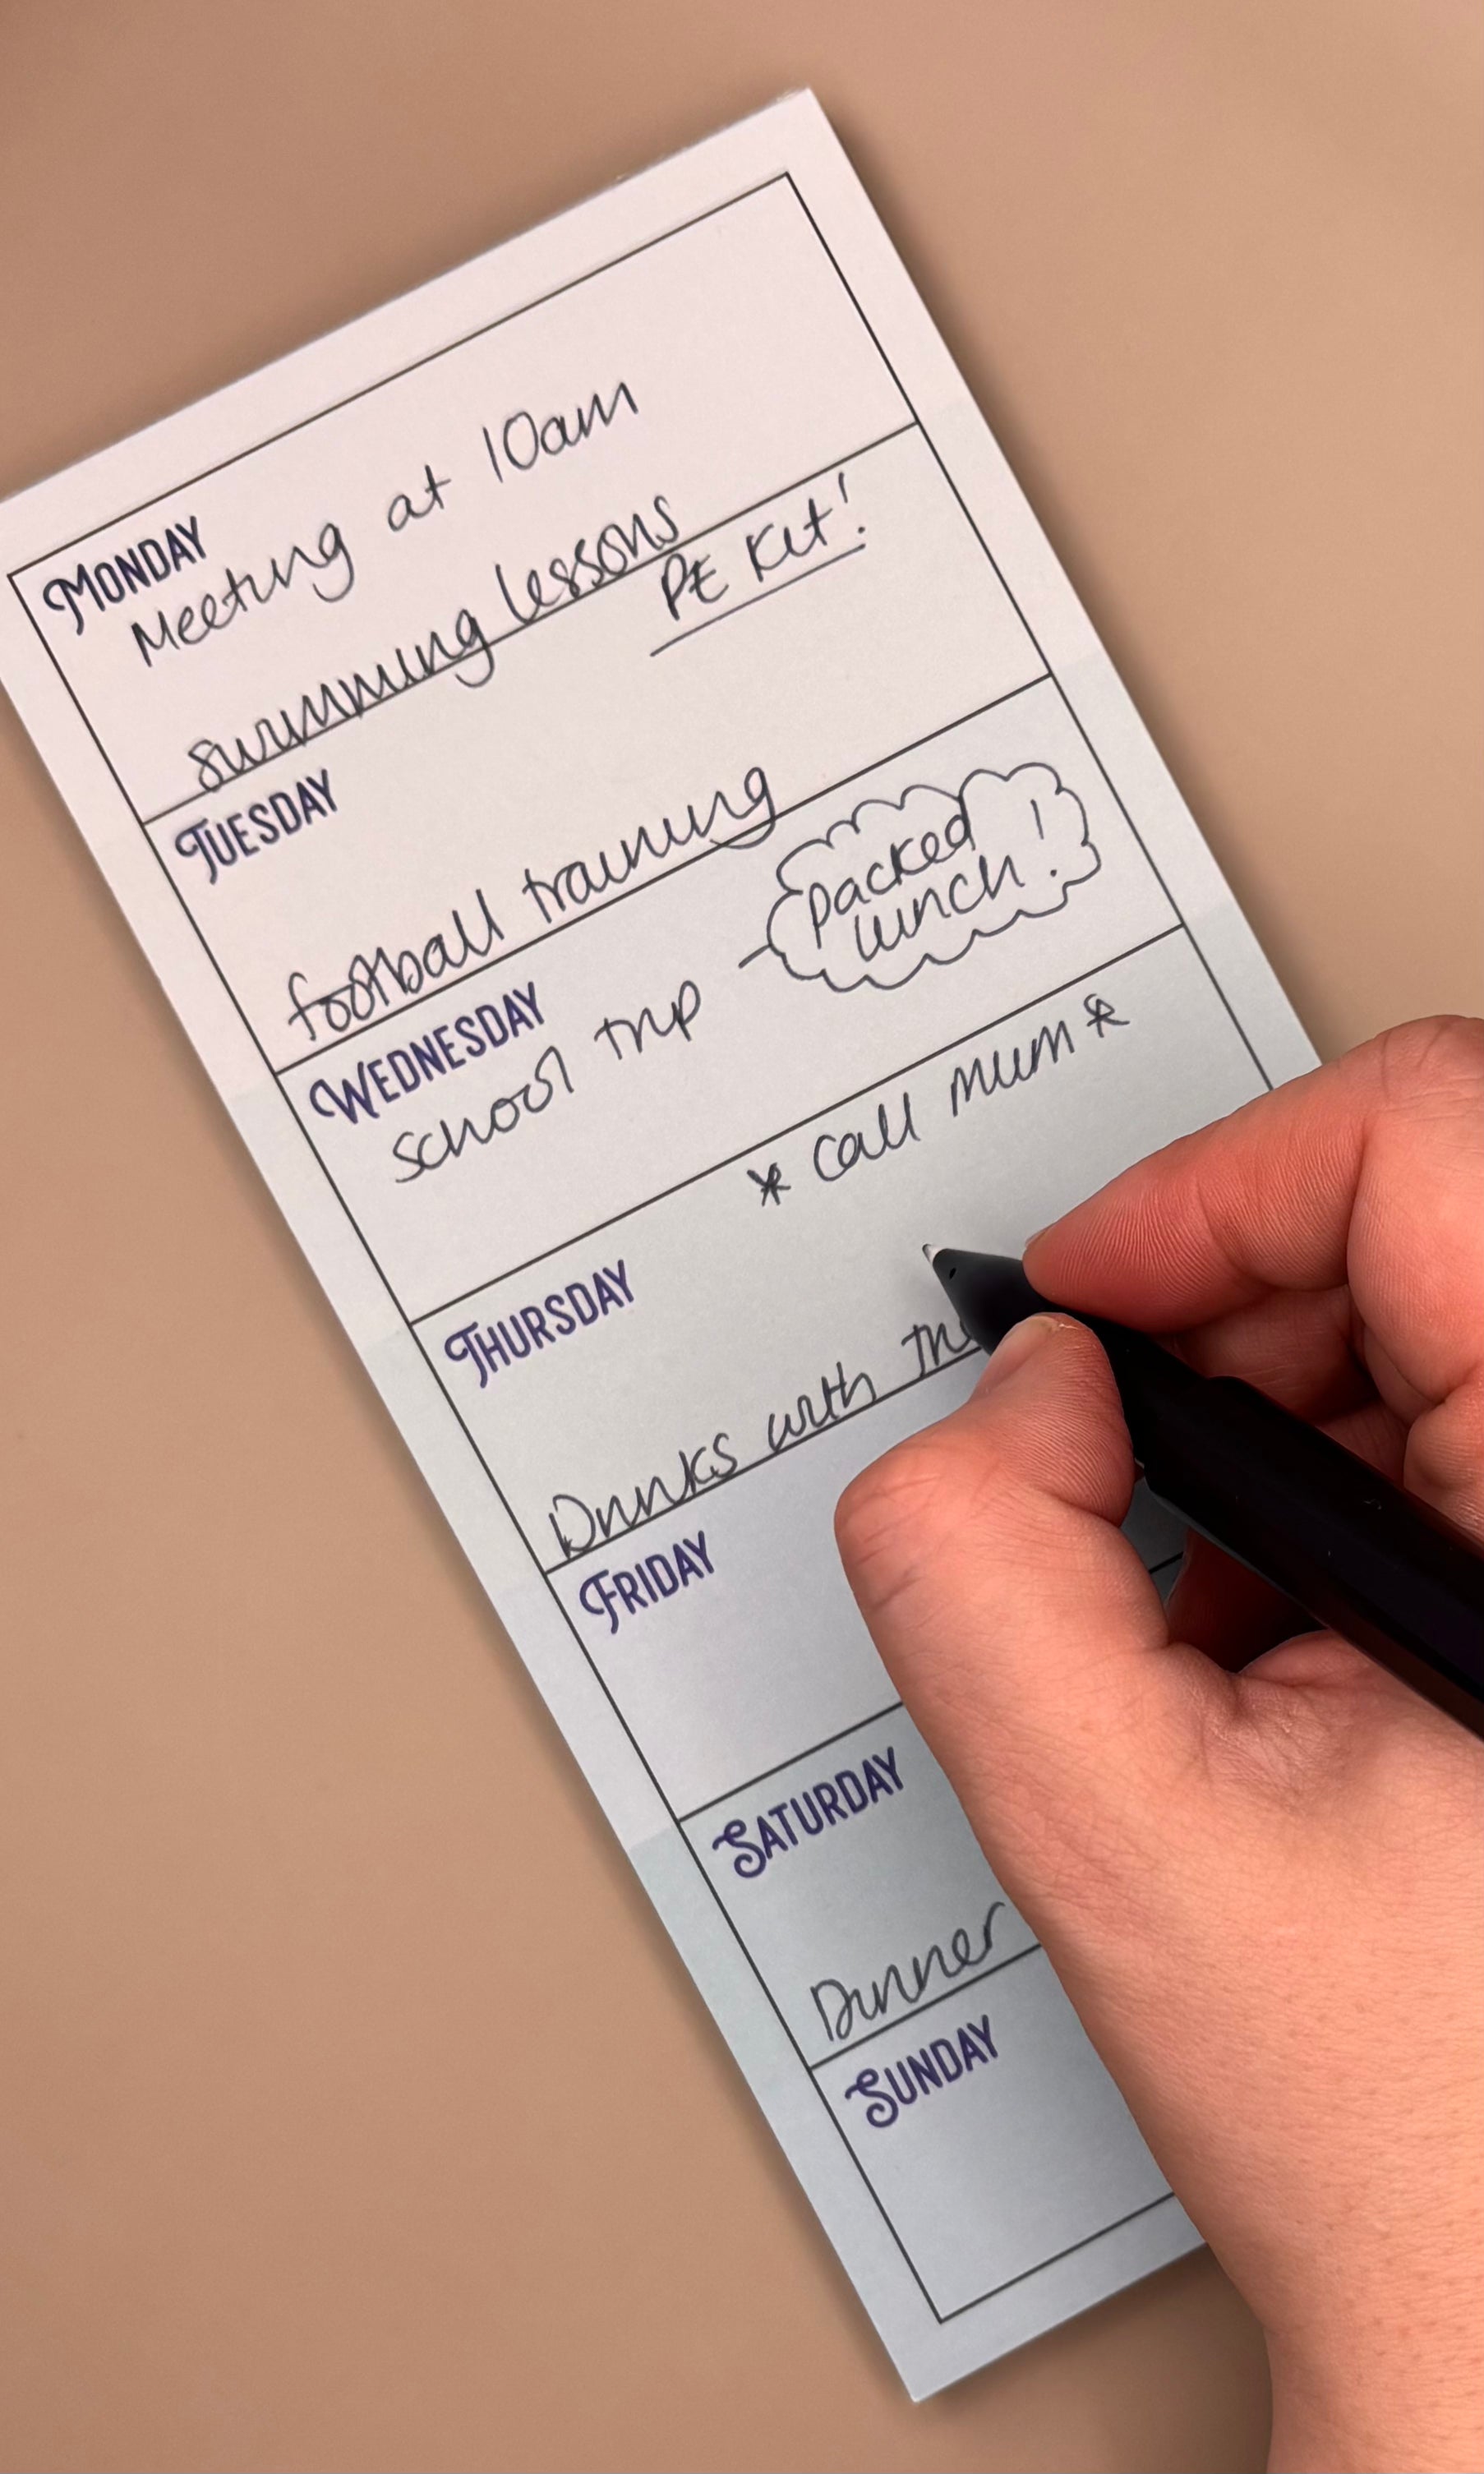 MONDAY
Meeting at 10am
swimming lessons
TUESDAY
PE Kit!
football training
WEDNESDAY
school trip
packed
lunch!
THURSDAY
* call mum *
Drinks with
FRIDAY
SATURDAY
Dinner
SUNDAY